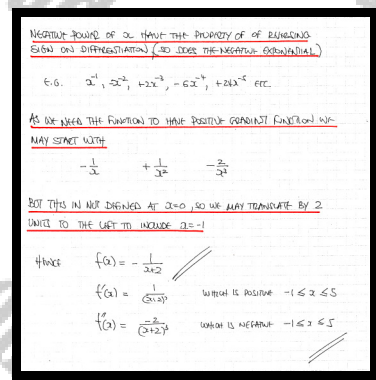 NEGATIVE POWER OF x HAVE THE PROPERTY OF OF REVERSING
SIGN ON DIFFERENTIATION (SO DOES THE NEGATIVE EXPONENTIAL)
E.G. x⁻¹, -x⁻², +2x⁻³, -6x⁻⁴, +24x⁻⁵ ETC
AS WE NEED THE FUNCTION TO HAVE POSITIVE GRADIENT FUNCTION WE
MAY START WITH
-1/x +1/x² -2/x³
BUT THIS IN NOT DEFINED AT x=0, SO WE MAY TRANSLATE BY 2
UNITS TO THE LEFT TO INCLUDE x=-1
HENCE f(x) = -1/(x+2)
f'(x) = 1/(x+2)² WHICH IS POSITIVE -1 ≤ x ≤ 5
f''(x) = -2/(x+2)³ WHICH IS NEGATIVE -1 ≤ x ≤ 5